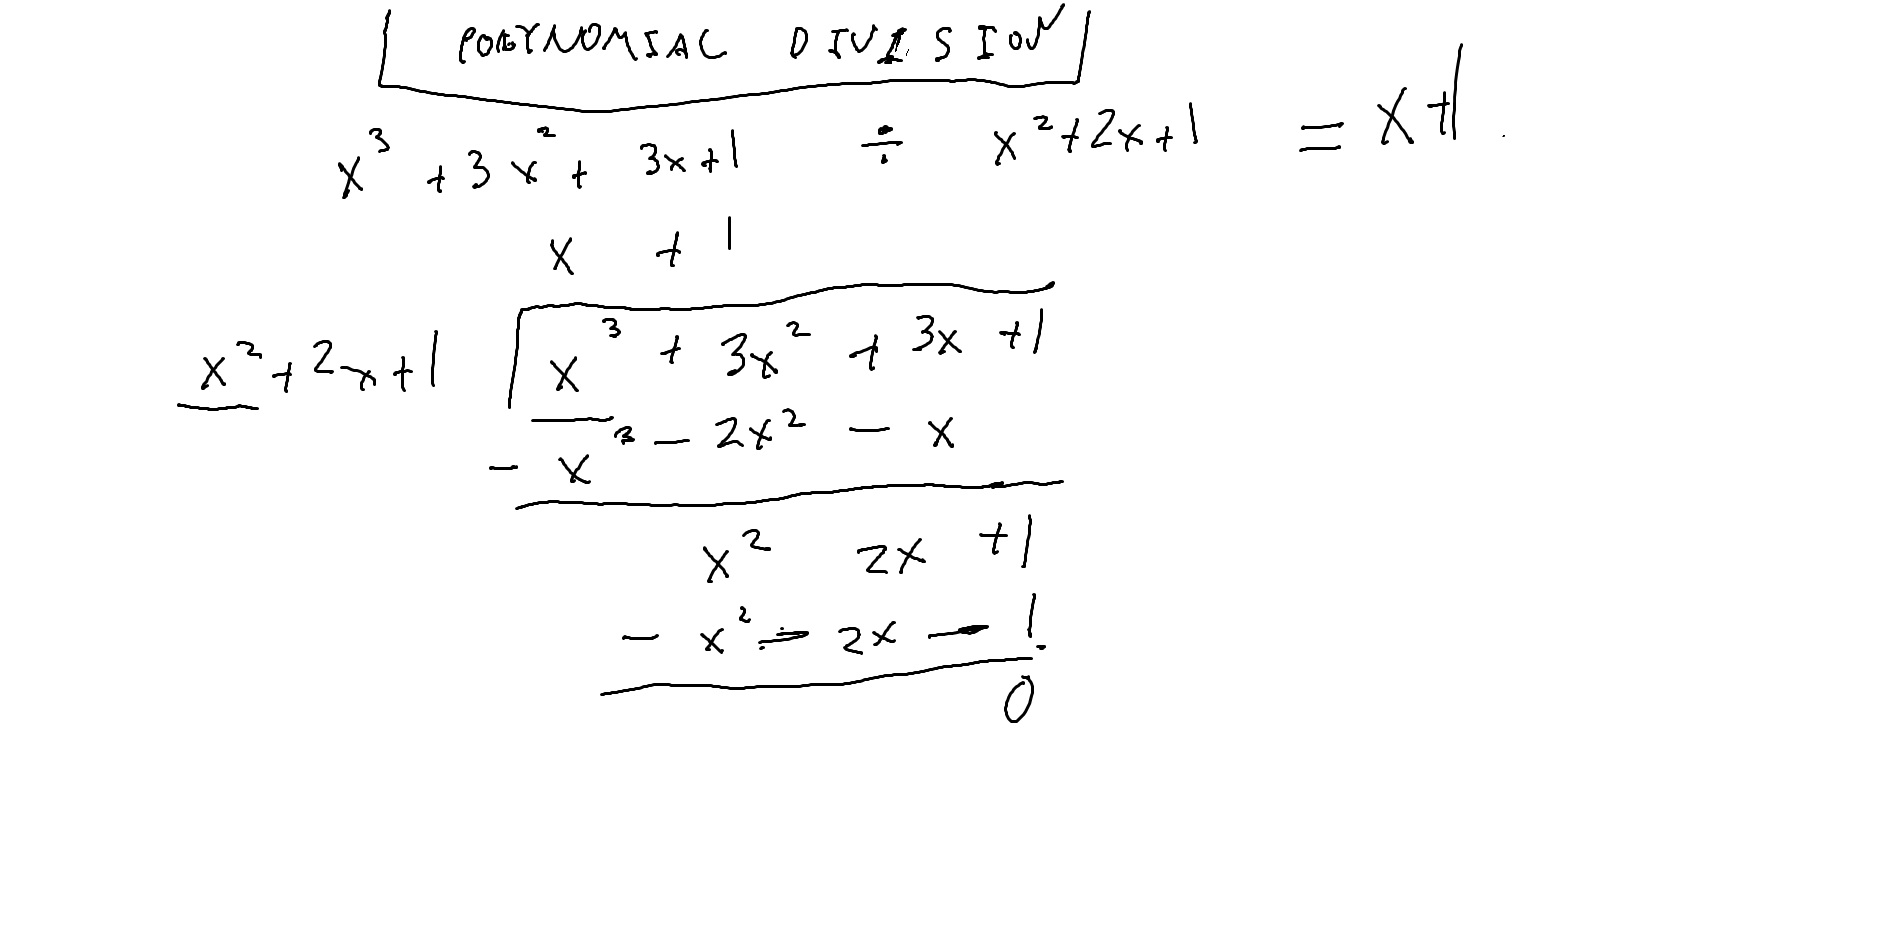 POLYNOMIAL DIVISION
x³ + 3x² + 3x + 1 ÷ x² + 2x + 1 = x + 1
x + 1
x² + 2x + 1 x³ + 3x² + 3x + 1
- x³ - 2x² - x
x² 2x + 1
- x² - 2x - 1
0